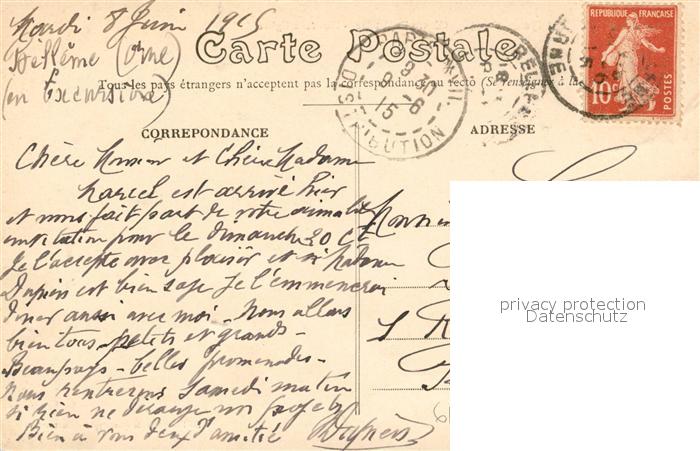 Mardi 8 Juin 1915
Bellême (Orne)
(en Excursion)
Carte Postale
Tous les pays étrangers n'acceptent pas la correspondance au recto (Se renseigner à la
CORREPONDANCE
ADRESSE
REPUBLIQUE FRANÇAISE
10
POSTES
DISTRIBUTION
15
Chère Monsieur et Chère Madame
Marcel est arrivé hier
et nous fait part de votre aimable
invitation pour le dimanche 20 Ct
Je l'accepte avec plaisir et si Madame
Dupieis est bien sage je l'emmenerai
diner aussi avec moi. Nous allons
bien tous, petits et grands.
Beau pays - belles promenades.
Nous rentrerons samedi matin
si rien ne dérange nos projets
Bien à vous deux d'amitié
privacy protection
Datenschutz